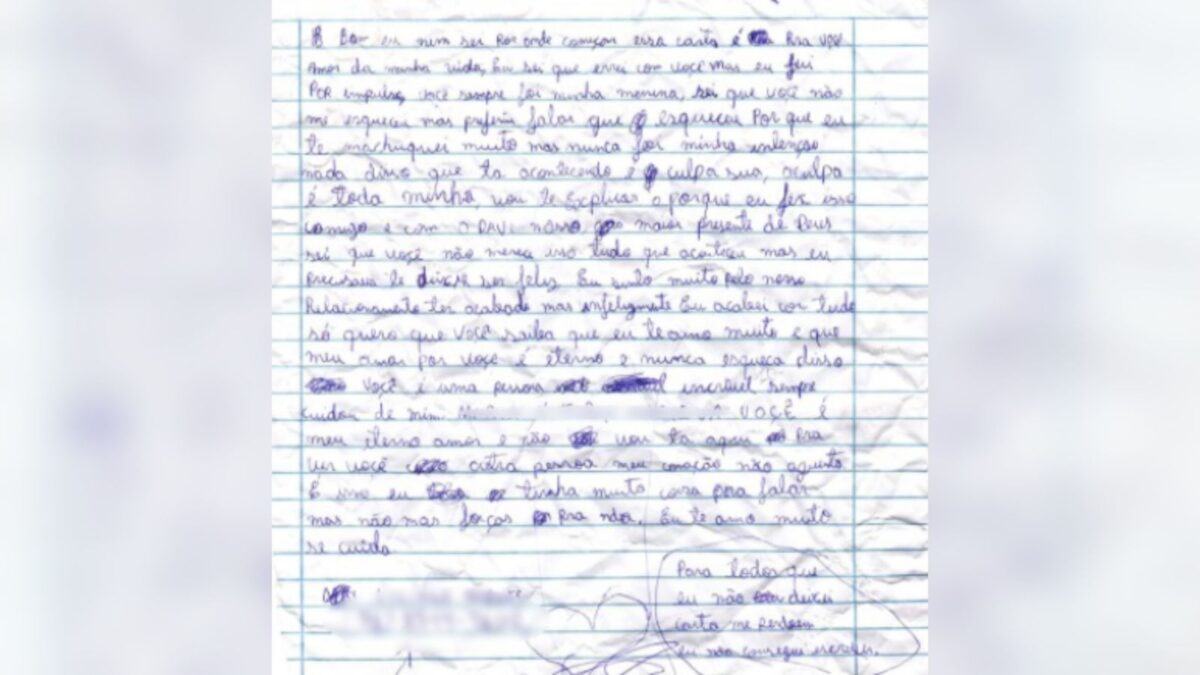 eu nim sei por onde começar essa carta é Pra você
amor da minha vida, Eu sei que errei com você mas eu fui
POR impulso, você sempre foi minha menina, sei que você não
me esqueceu mas preferiu falar que esqueceu Por que eu
te machuquei muito mas nunca foi minha intenção
nada disso que ta acontecendo é culpa sua, aculpa
é toda minha, vou te Explicar o porque eu fez isso
comigo e com o DAVI nosso maior presente de Deus
sei que você não mereça isso tudo que aconteceu mas eu
Precisava te deixar ser feliz Eu sinto muito pelo nosso
Relacionamento ter acabado mas infelizmente Eu acabei cor tudo
só quero que você saiba que eu te amo muito e que
meu amor por você é eterno e nunca esqueça disso
você é uma pessoa incrivel sempre
cuidou de mim. VOCÊ É
meu eterno amor e não vou ta aqui Pra
ver você outra pessoa meu coração não aguenta
É isso eu tinha muito coisa para falar
mas não mas forças Pra nda. Eu te amo muito
se cuida
Para todos que
eu não deixei
carta me Perdoem
eu não consegui escrever.